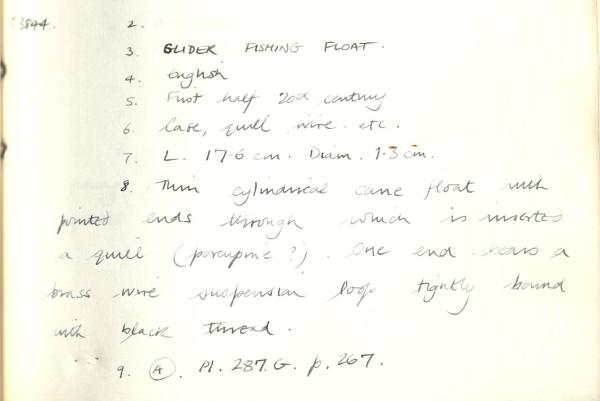 13844. 2.
3. GLIDER FISHING FLOAT.
4. English
5. First half 20th century
6. Case, quill wire. etc.
7. L. 17.6 cm. Diam. 1.3 cm.
8. Thin cylindrical cane float with
pointed ends through which is inserted
a quill (porcupine?). One end bears a
brass wire suspension loop tightly bound
with black thread.
9. (A). Pl. 287.G. p. 267.